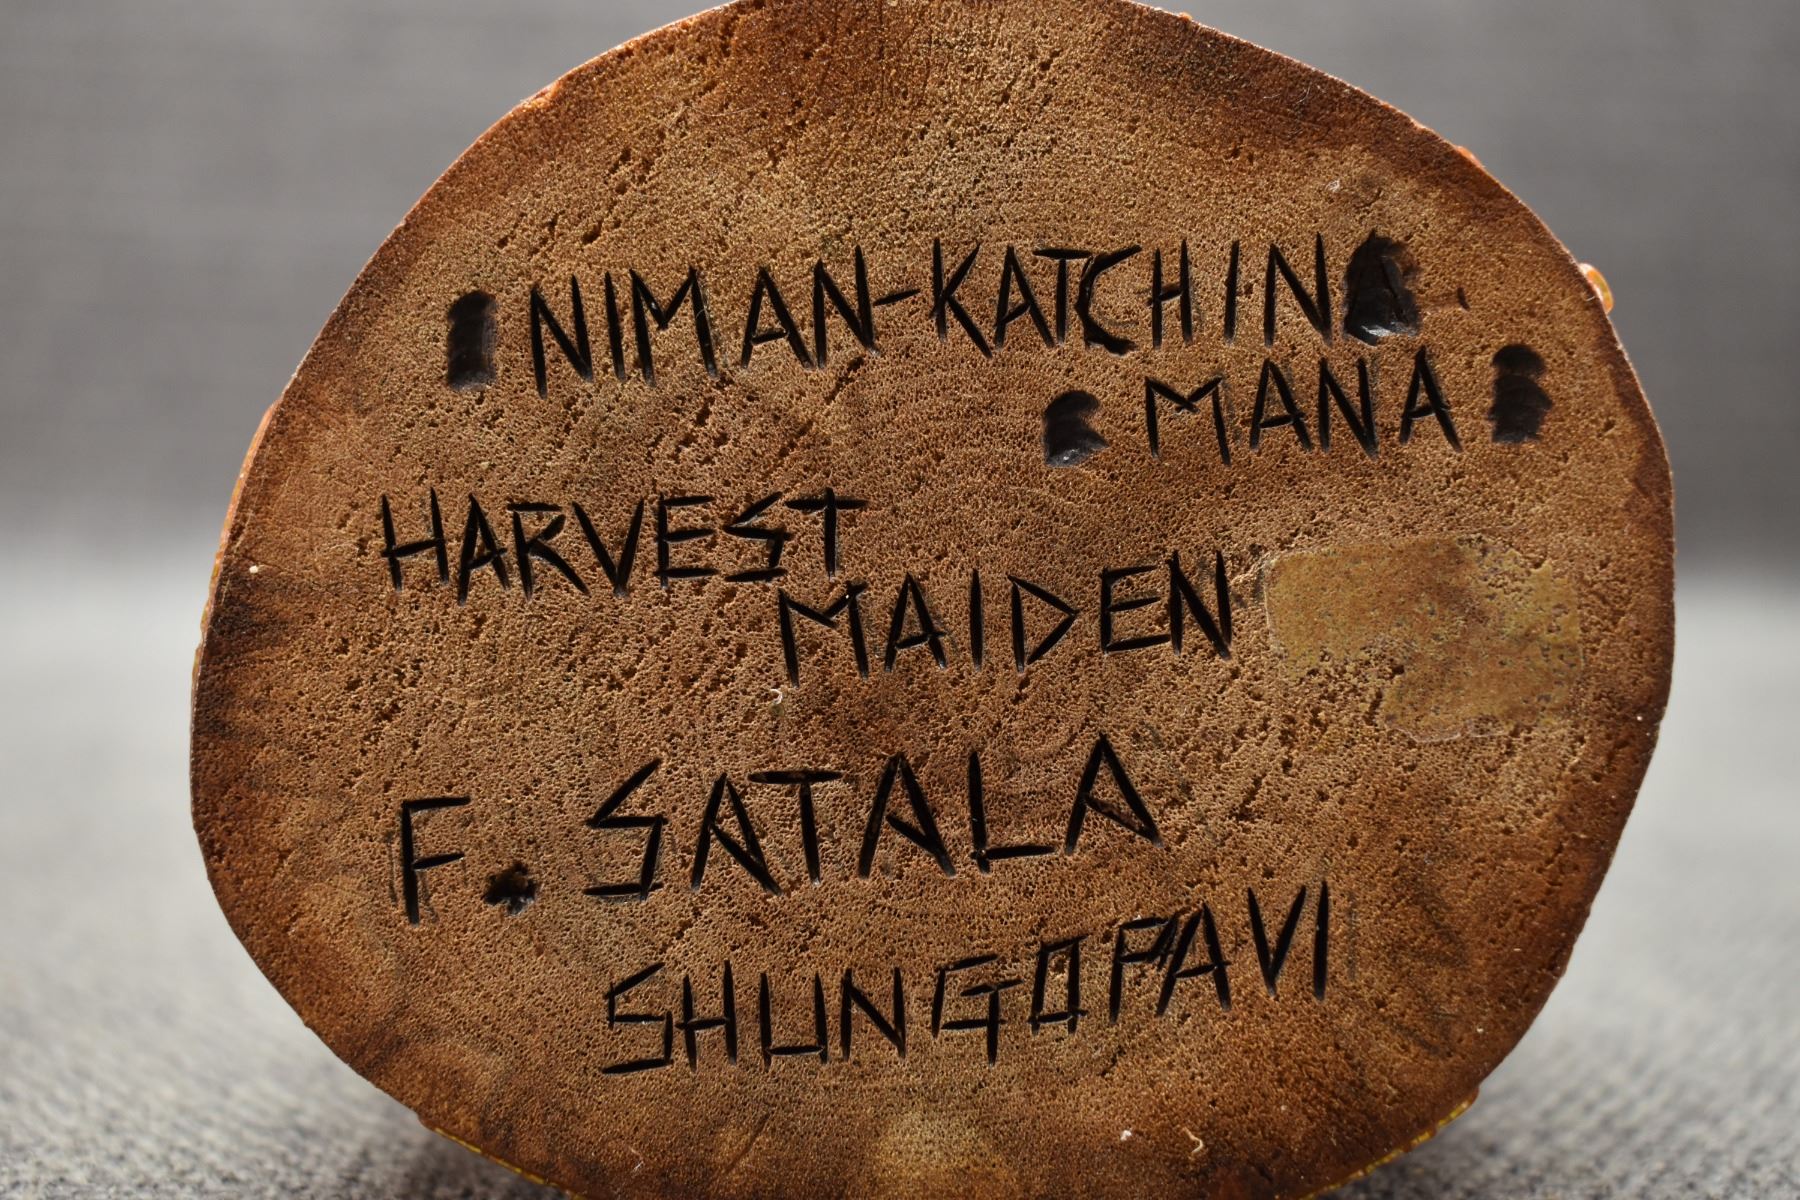 "NIMAN-KATCHINA
"MANA"
HARVEST
MAIDEN
F. SATALA
SHUNGOPAVI